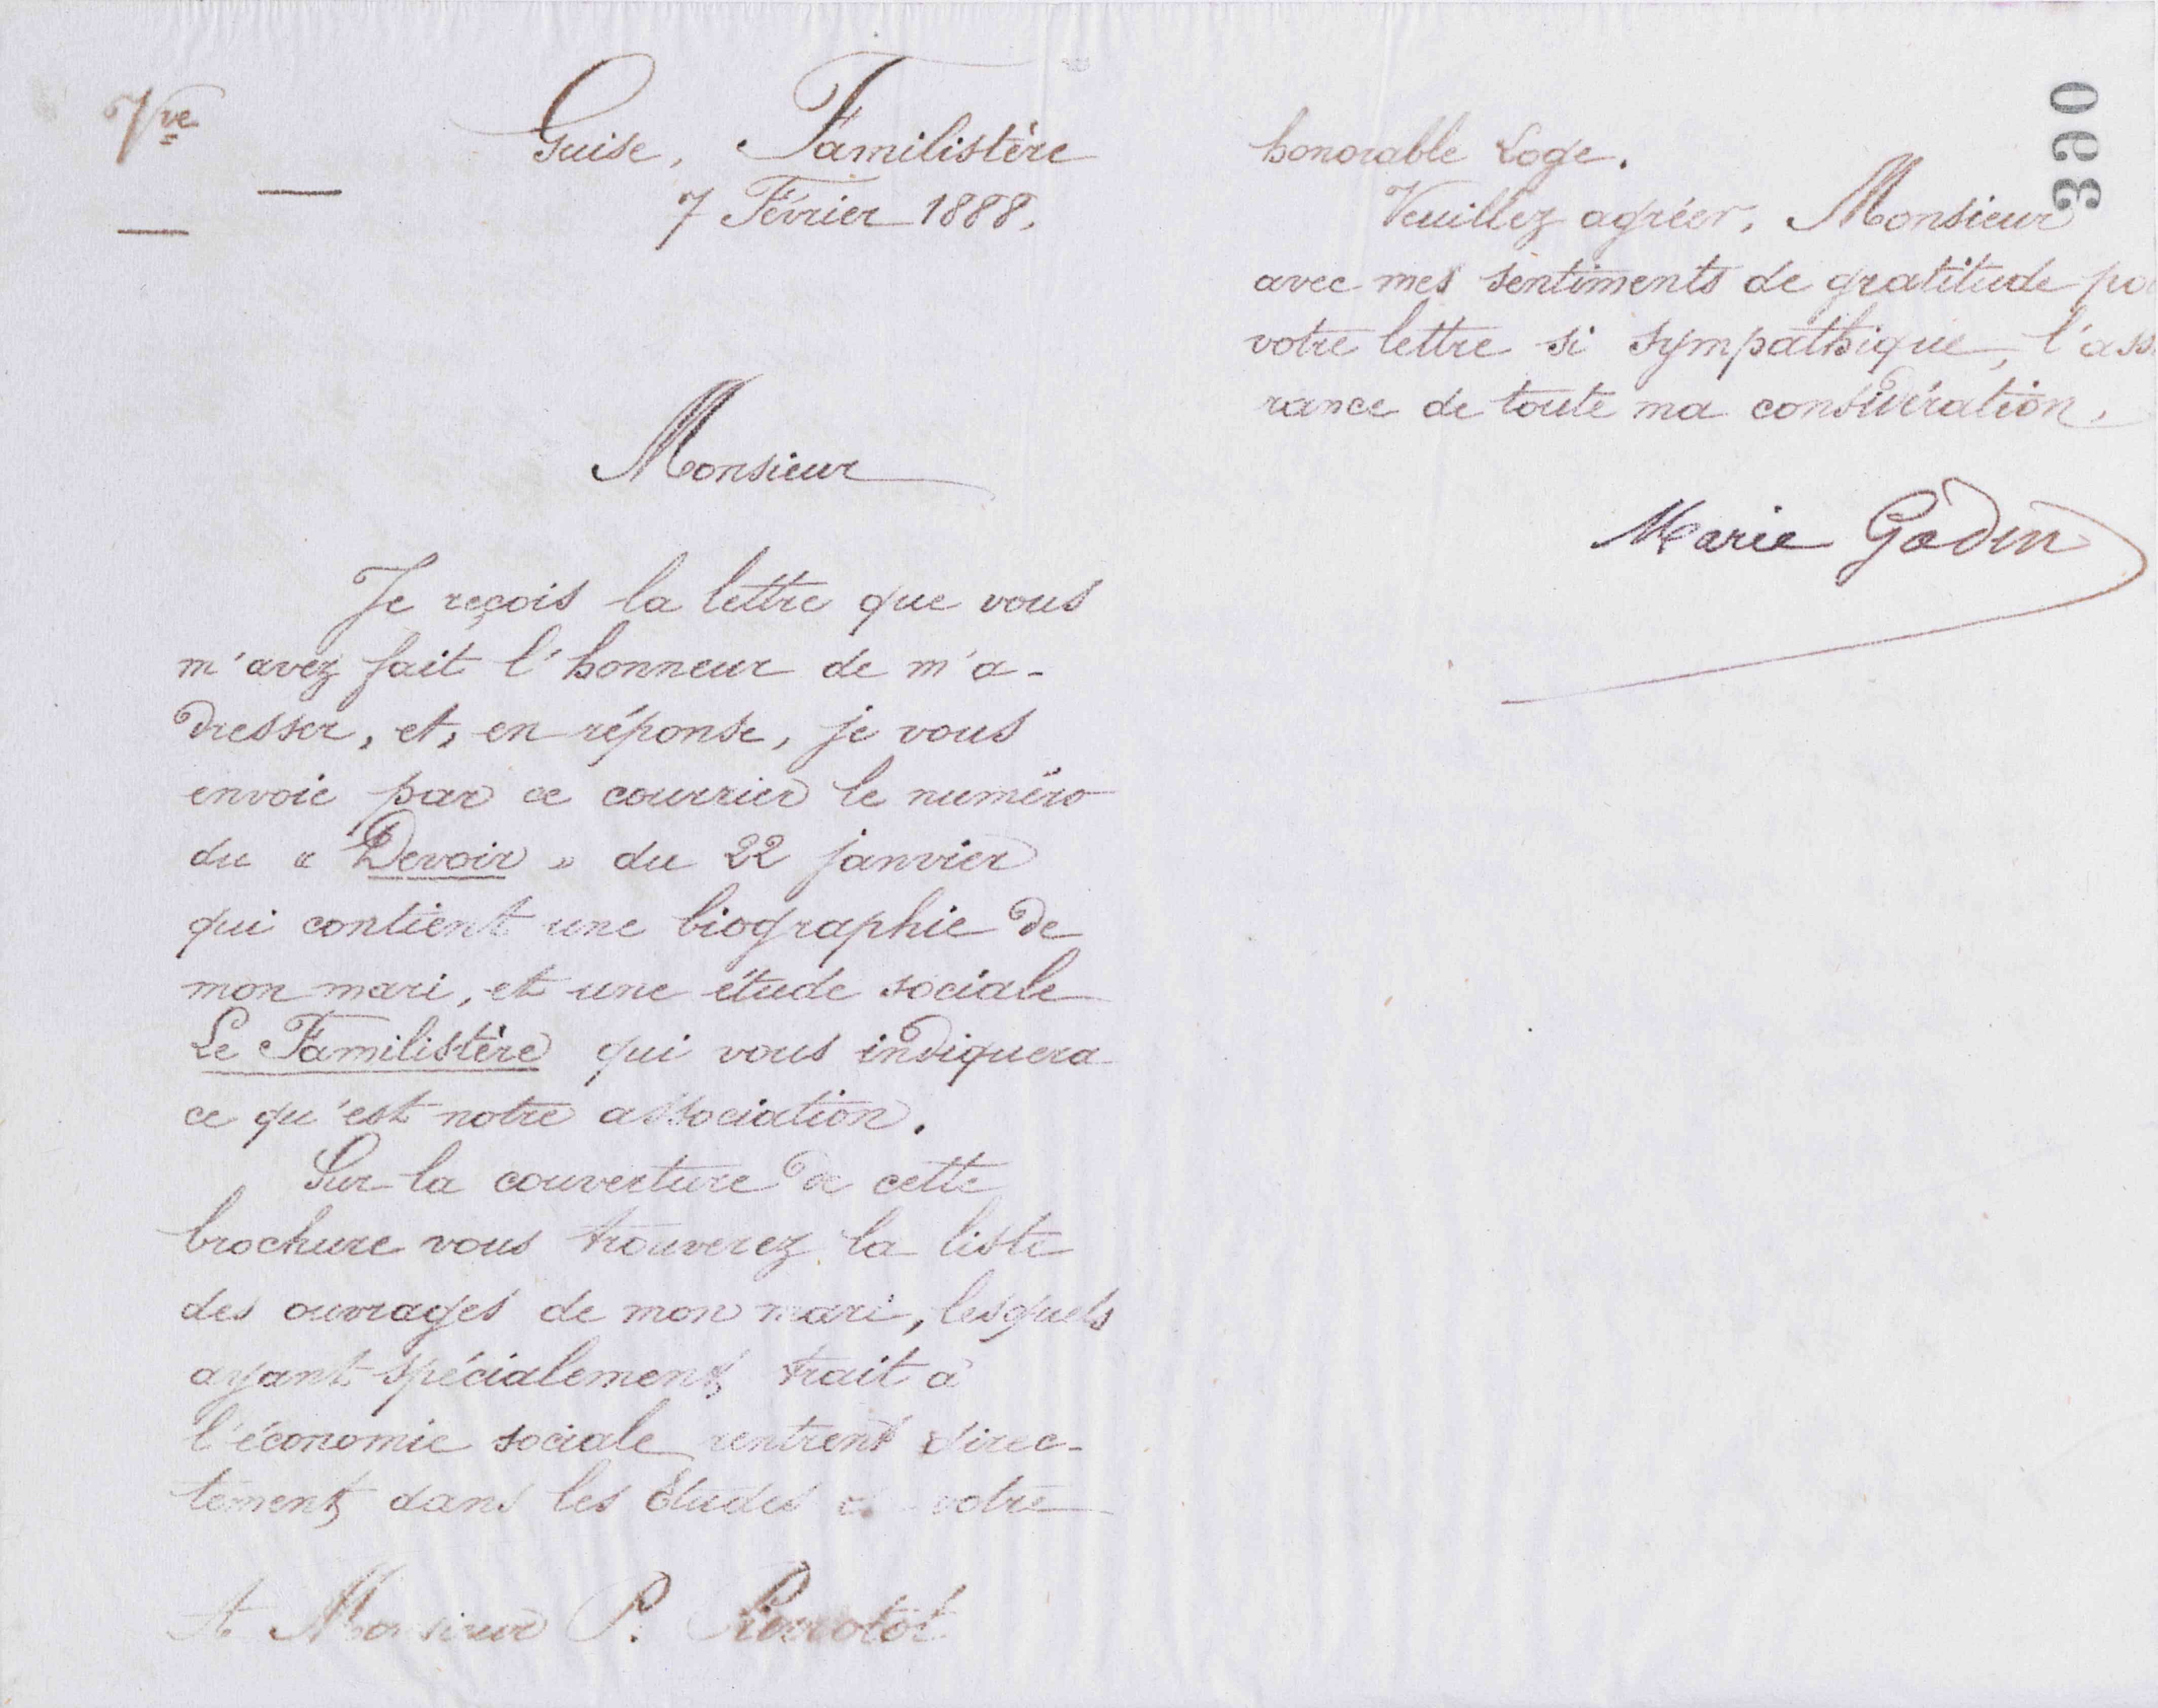 Vve
Guise, Familistère
7 Février 1888.
Monsieur
Je reçois la lettre que vous
m'avez fait l'honneur de m'a-
dresser, et, en réponse, je vous
envoie par ce courrier le numéro
du « Devoir » du 22 janvier
qui contient une biographie de
mon mari, et une étude sociale
Le Familistère qui vous indiquera
ce qu'est notre association.
Sur la couverture de cette
brochure vous trouverez la liste
des ouvrages de mon mari, lesquels
ayant spécialement trait à
l'économie sociale rentrent direc-
tement dans les études votre
A Monsieur P.
390
honorable Loge.
Veuillez agréer, Monsieur
avec mes sentiments de gratitude po
votre lettre si sympathique, l'ass
rance de toute ma considération.
Marie Godin